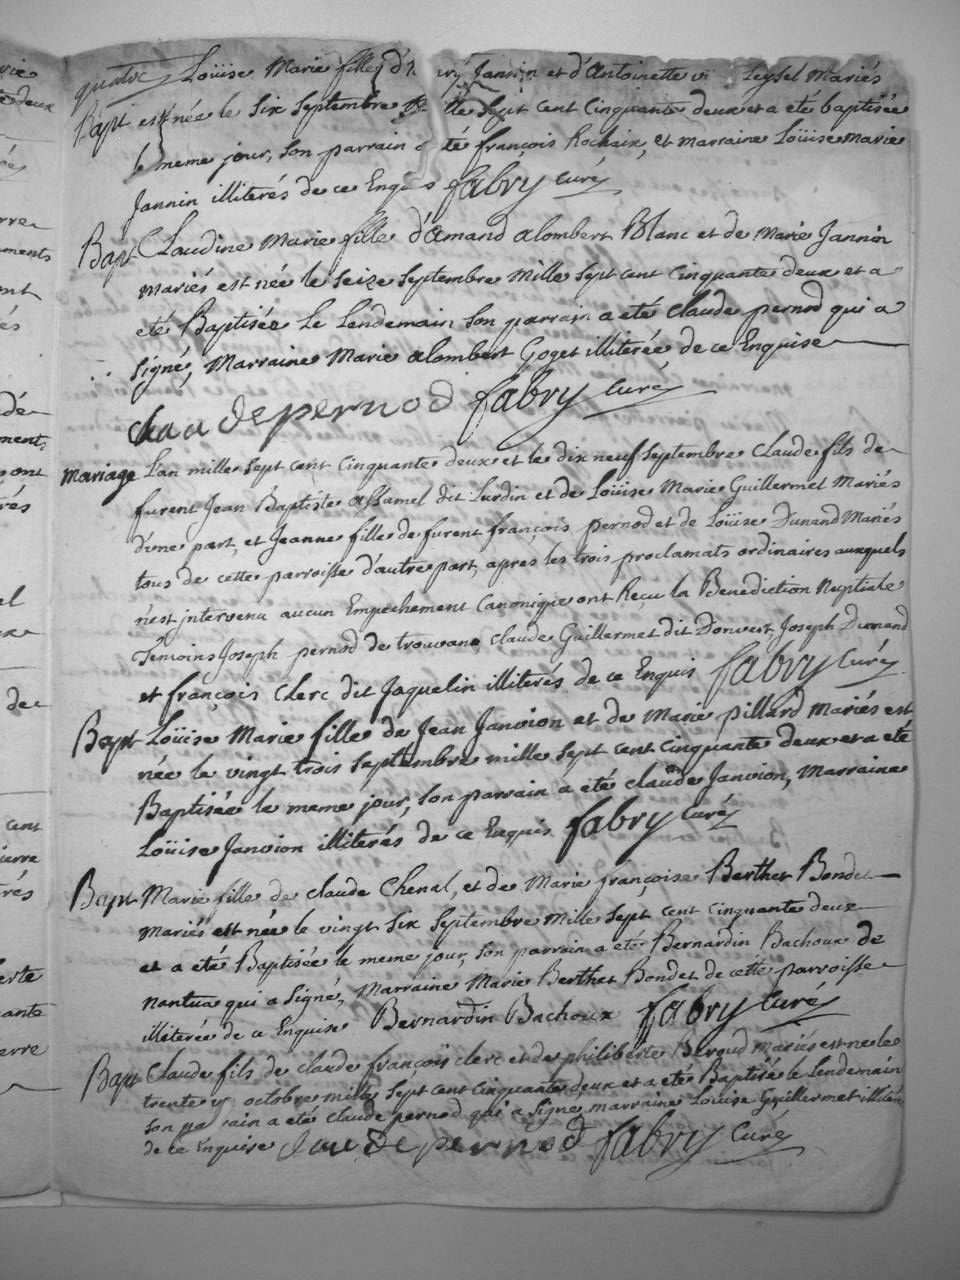 quatre Loüise Marie filles d' Jannin et d'Antoinette Leysel Mariés
Bapt est née le six septembre sept cent cinquante deux et a eté baptisée
le meme jour, son parrain a té françois Rochaix, et marraine Loüise Marie
Jannin illiterés de ce Enquis fabry Curé
Bapt Claudine Marie fille d'Amand Alombert Blanc et de Marie Jannin
mariés est née le seize septembre mille sept cent cinquante deux et a
eté Baptisée Le Lendemain son parrain a eté Claude pernod qui a
signé, Marraine Marie alombert Goget illiterée de ce Enquise
claude pernod fabry Curé
Mariage L'an mille sept cent cinquante deux et le dix neuf septembre Claude fils de
furent Jean Baptiste Hamel dit Lurdin et de Loüise Marie Guillermet Mariés
d'une part, et Jeanne fille de furent françois pernod et de Loüise Dunand Mariés
tous de cette parroisse d'autre part, apres les trois proclamats ordinaires auxquels
n'est intervenu aucun Empechement Canonique ont Reçu la Benediction Nuptiale
Temoins Joseph pernod de trouvane, Claude Guillermet dit Donvert, Joseph Dunand
et françois Clerc dit Jaquelin illiterés de ce Enquis fabry Curé
Bapt Loüise Marie fille de Jean Janvion et de Marie pillard mariés est
née le vingt trois septembre mille sept cent cinquante deux et a eté
Baptisée le meme jour, son parrain a eté claude Janvion, Marraine
Loüise Janvion illiterés de ce Enquis fabry Curé
Bapt Marie fille de claude Chenal, et de Marie françoise Berthet Bondet
mariés est née le vingt six septembre Mille sept cent cinquante deux
et a eté Baptisée le meme jour, son parrain a eté Bernardin Bachoux de
nantua qui a signé, Marraine Marie Berthet Bondet de cette parroisse
illiterée de ce Enquise Bernardin Bachoux fabry Curé
Bapt Claude fils de claude françois clerc et de philiberte Beroud mariés est né le
trente octobre mille sept cent cinquante deux et a eté Baptisé le Lendemain
son pa rain a eté claude pernod qui a signé marraine Loüise Guillermet illiteré
de ce Enquise claude pernod fabry Curé